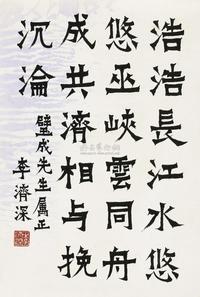 浩浩長江水悠
悠巫峽雲同舟
成共濟相与挽
沉淪
璧成先生属正
李濟深